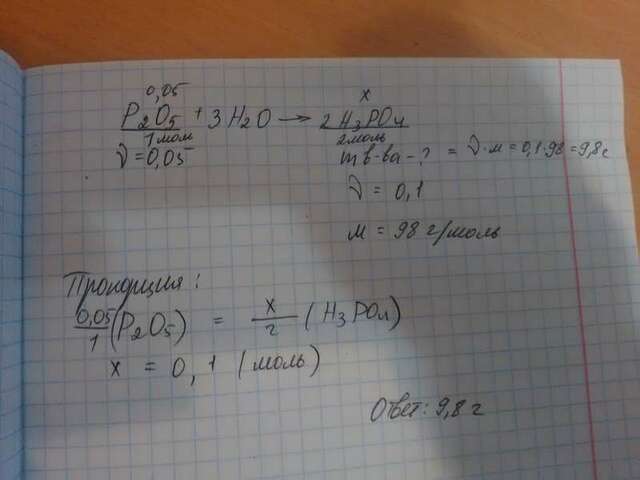 0,05 x
P2O5 + 3H2O → 2H3PO4
1 моль 2 моль
ν = 0,05 m в-ва - ? = ν·м = 0,1·98 = 9,8 г
ν = 0,1
м = 98 г/моль
Пропорция:
0,05/1 (P2O5) = x/2 (H3PO4)
x = 0,1 (моль)
Ответ: 9,8 г